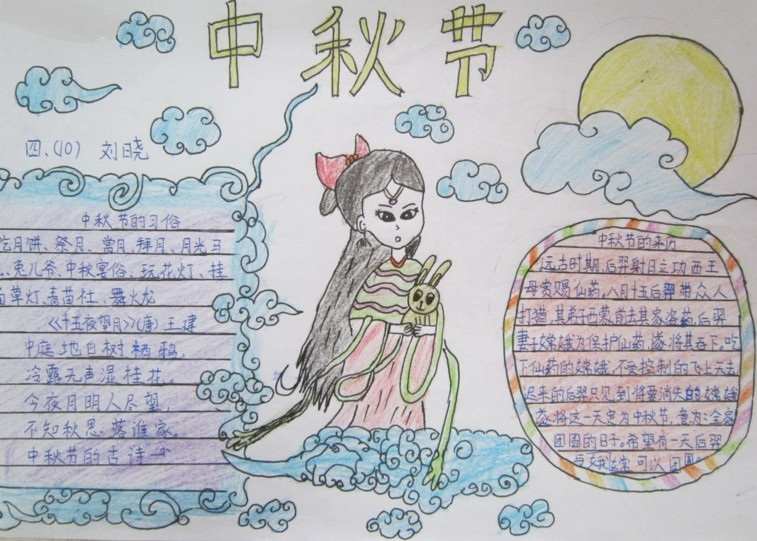 中秋节
四、(10) 刘晓
中秋节的习俗
吃月饼、祭月、赏月、拜月、月光马
、兔儿爷、中秋宴俗、玩花灯、挂
草灯、青苗社、舞火龙
《十五夜望月》(唐)王建
中庭地白树栖鸦,
冷露无声湿桂花,
今夜月明人尽望,
不知秋思落谁家,
中秋节的古诗
中秋节的来历
远古时期,后羿射日立功西王
母赏赐仙药,八月十五后羿带众人
打猎,其弟子西蒙前去其家盗药,后羿
妻子嫦娥为保护仙药,遂将其吞下,吃
下仙药的嫦娥,不受控制的飞上天去
迟来的后羿只见到将要消失的嫦娥
遂将这一天定为中秋节,意为:全家
团圆的日子。希望有一天后羿
可以团圆